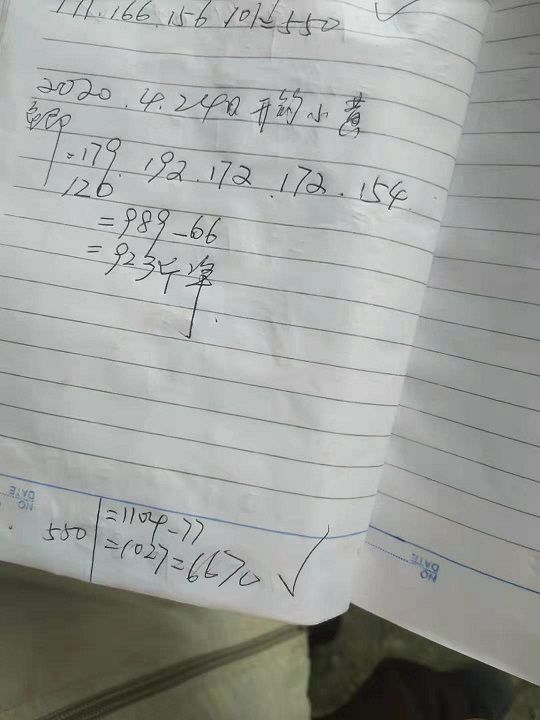 111.166.156.101=550
2020.4.24日 开 小黄
=179.192.172.172.154.
120
=989-66
=923斤净
NO
DATE
550
=1104-77
=1027=6670
NO
DATE